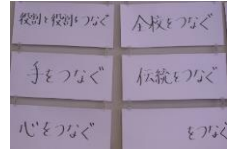 役割と役割をつなぐ
全校をつなぐ
手をつなぐ
伝統をつなぐ
心をつなぐ
をつなぐ